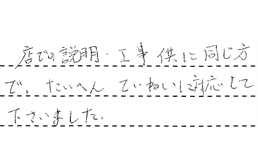 店での説明・工事供に同じ方
で、たいへん ていねいに対応して
下さいました.